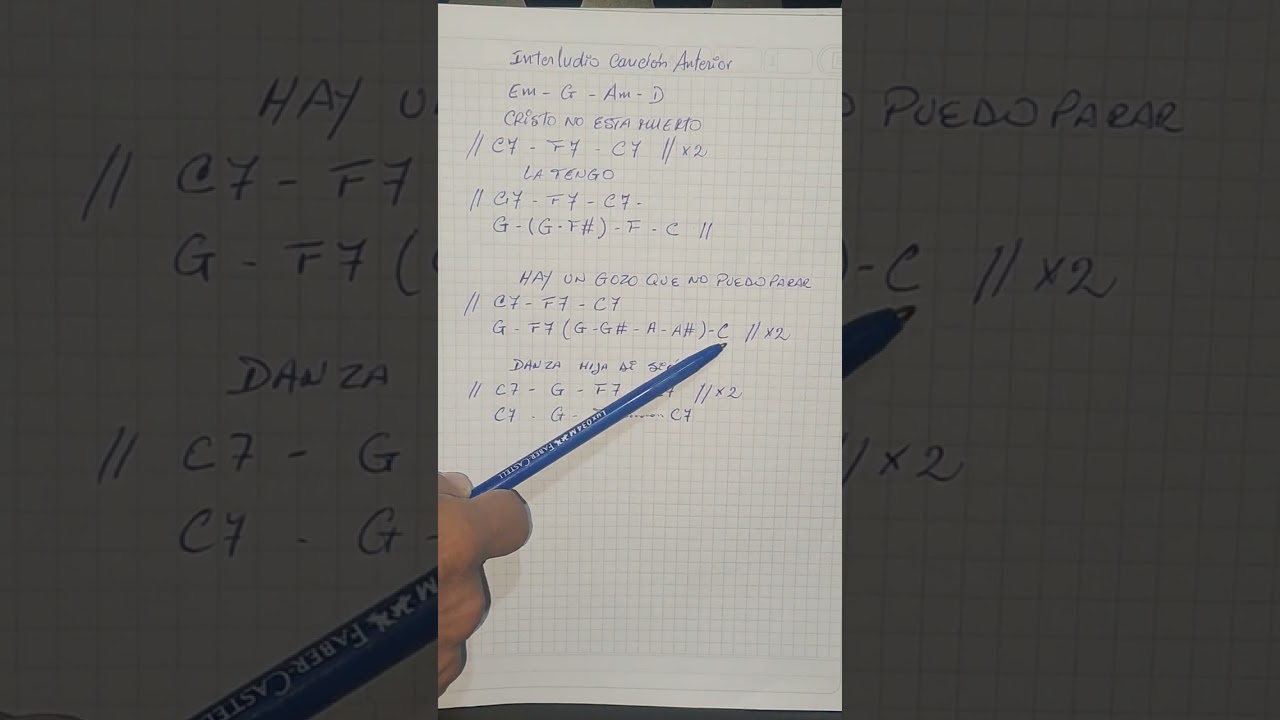 Interludio Canción Anterior
Em - G - Am - D
CRISTO NO ESTA MUERTO
// C7 - F7 - C7 // x2
LA TENGO
// C7 - F7 - C7 -
G - (G - F#) - F - C //
HAY UN GOZO QUE NO PUEDO PARAR
// C7 - F7 - C7
G - F7 (G - G# - A - A#) - C // x2
DANZA HIJA DE
// C7 - G - F7 C7 // x2
C7 - G - C7
Lux 034 M FABER-CASTELL